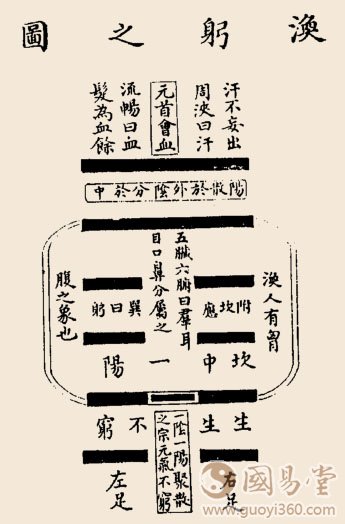 渙躬之圖
汗不妄出
周浹曰汗
元首會血
流暢曰血
髮為血餘
陽散於外陰分於中
渙人有胷
五臟六腑曰羣耳
目口鼻分屬之
腹之象也
附坎應
巽曰躬
坎中一陽
生生不窮
右足
一陰一陽聚散
之宗元氣不窮
左足
國易堂
www.guoyi360.com